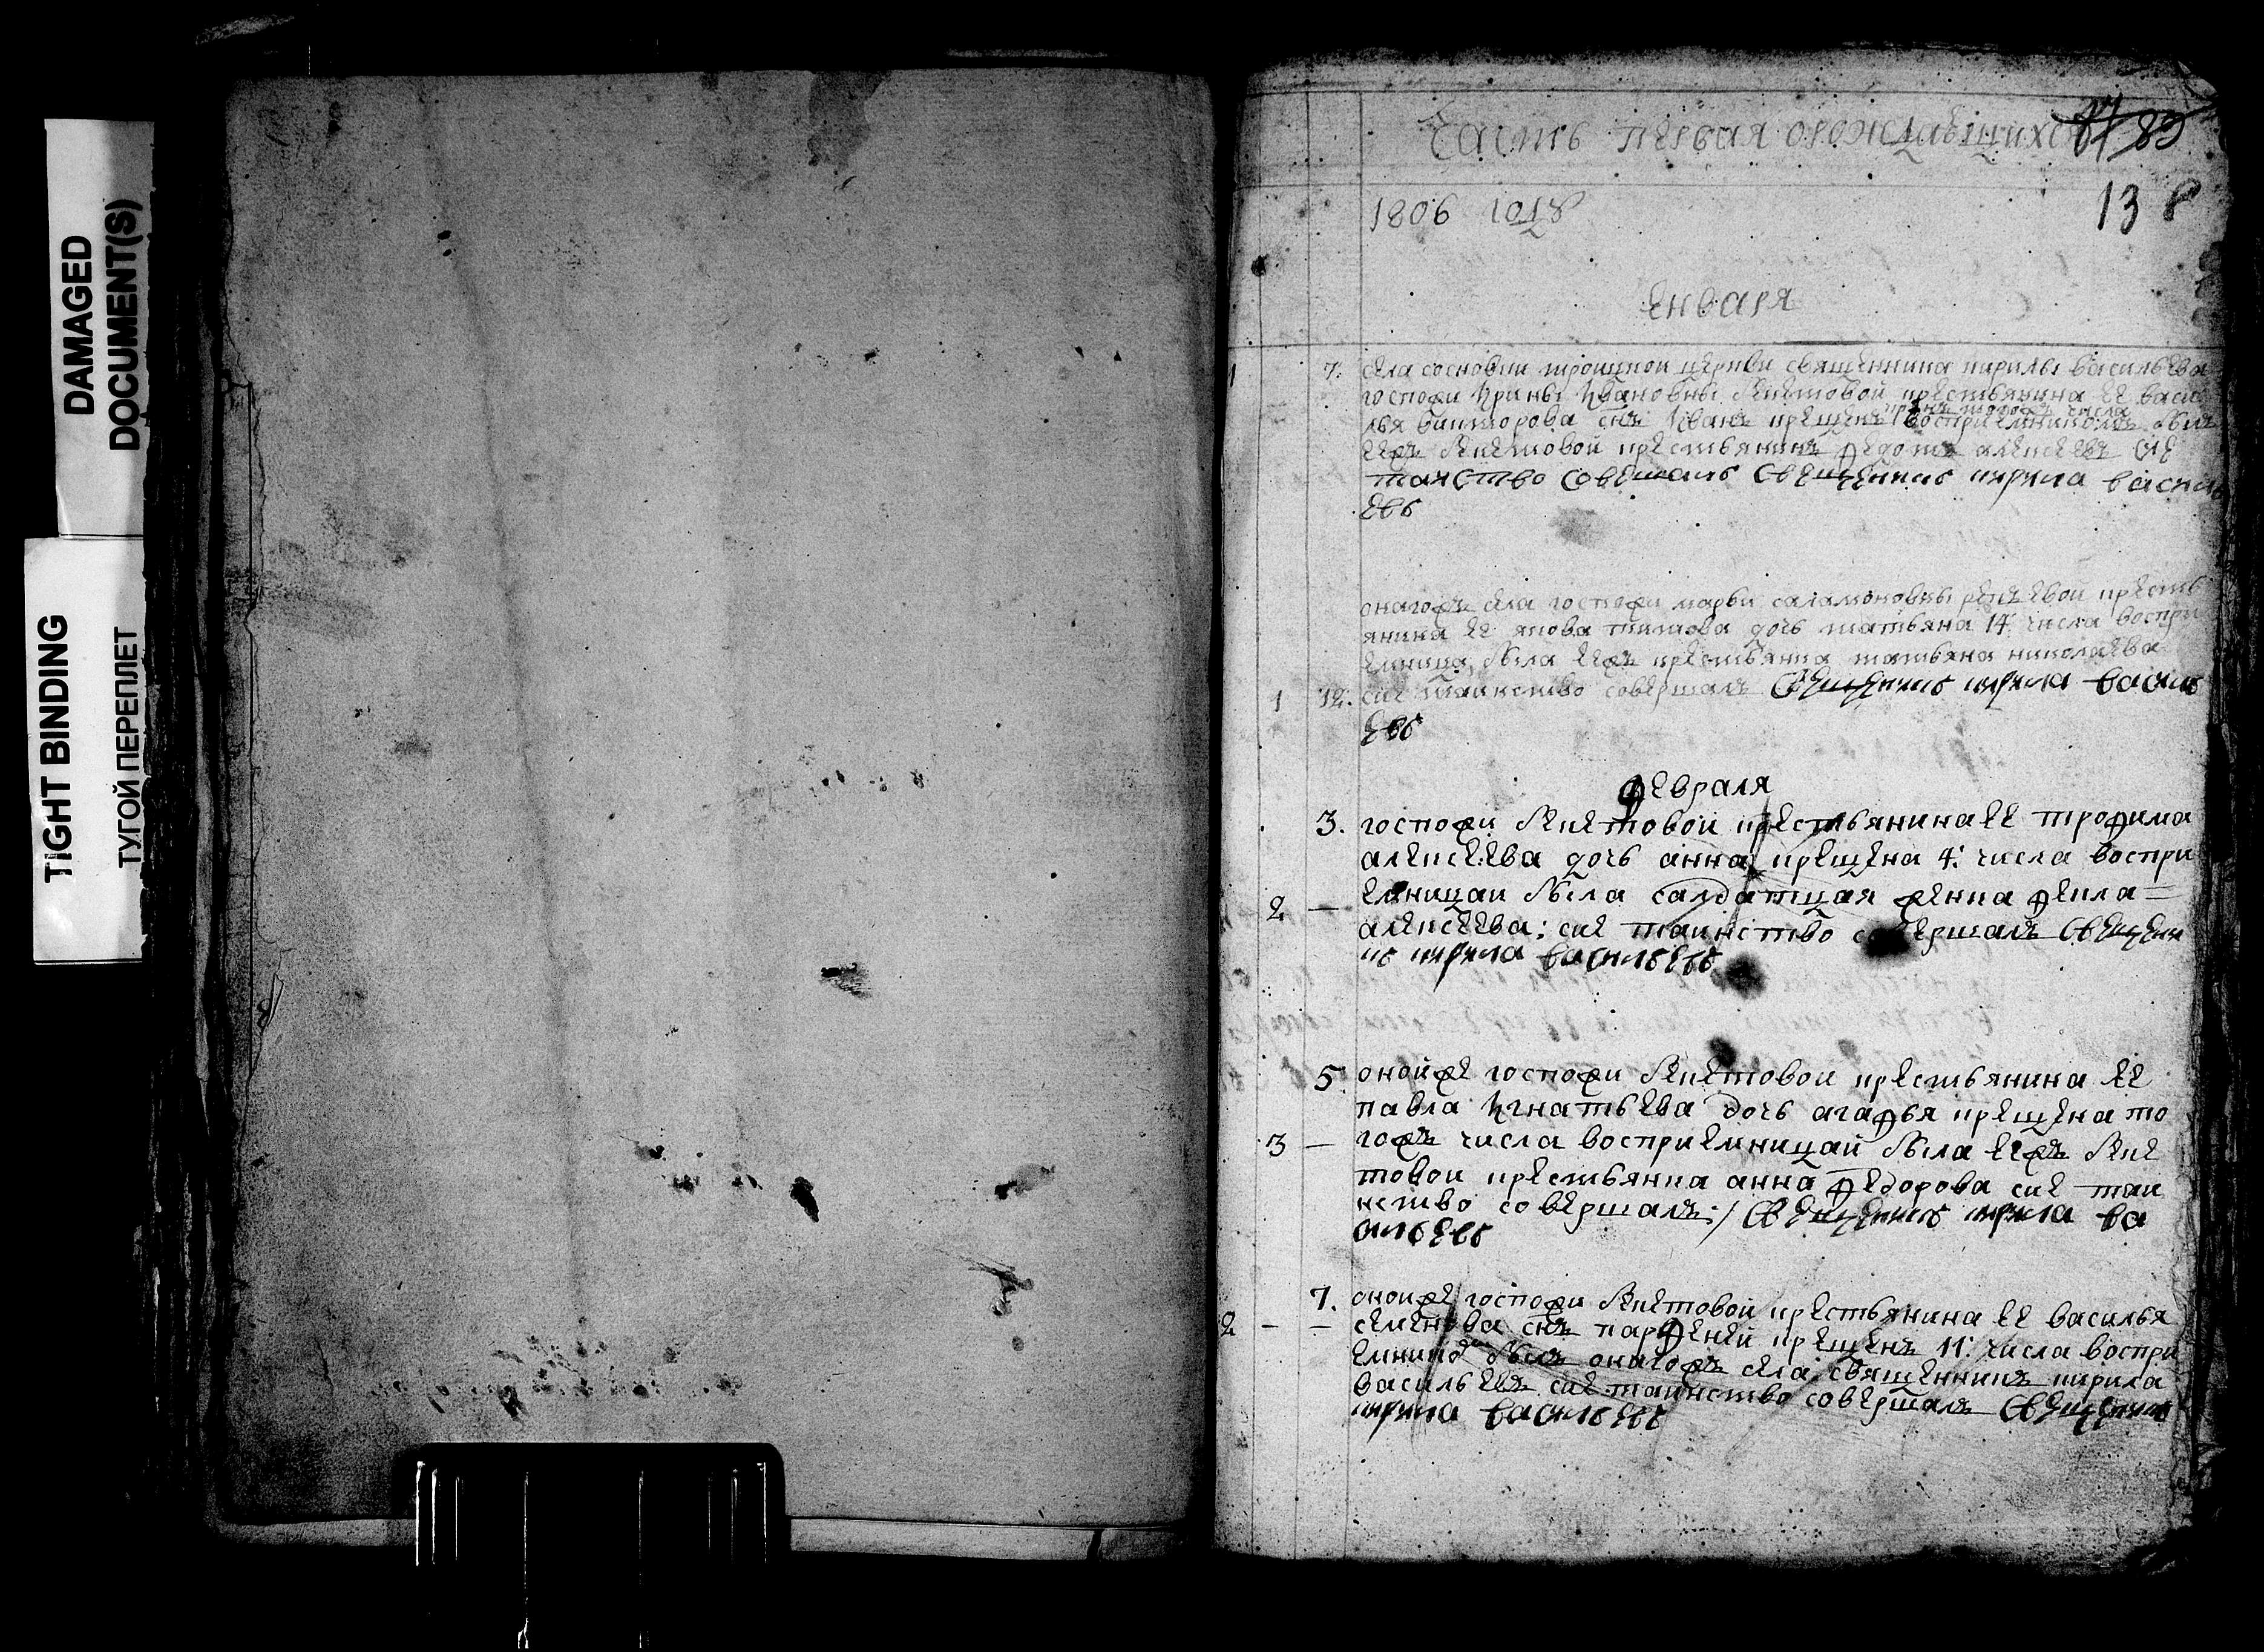 DAMAGED
DOCUMENT(S)
TIGHT BINDING
ТУГОЙ ПЕРЕПЛЕТ
Часть первая ораждающихся
89
1806 году
13
Генваря
1 7. села сосновки троицкой церкви священника кирилы васильева
госпожи Ирины Ивановны Бекетовой крестьянина ее васи
лья викторова снъ Иванъ крещенъ воспріемникомъ былъ
тогожъ числа
еежъ Бекетовой крестьянинъ федотъ алексеевъ сие
таиство совешалъ свещеникъ кирила василь
евъ
онагожъ села госпожи марьи саламоновны крестья
янина ее якова дочь татьяна 14 числа воспри
емница была еежъ крестьянка татьяна николаева
1 12. сие таинство совершалъ свещеникъ кирила василь
евъ
февраля
3. госпожи Бекетовой крестьянина ее трофима
алексеева дочь анна крещена 4: числа воспри
2 — емницаи была салдатцкая женка фекла
алексеева: сие таинство совершалъ свещени
къ кирила васильевъ
5 онойже госпожи Бекетовой крестьянина ее
павла Игнатьева дочь агафья крещена то
3 — гожъ числа воспріемницай была еежъ Беке
товой крестьянка анна федорова сие таи
нство совершалъ: свещеникъ кирила ва
сильевъ
7. онойже госпожи Бекетовой крестьянина ее василья
2 — — семенова снъ парфеней крещенъ 11: числа воспри
емникъ былъ онагожъ села священникъ кирила
васильевъ сие таинство совершалъ свещеникъ
кирила васильевъ